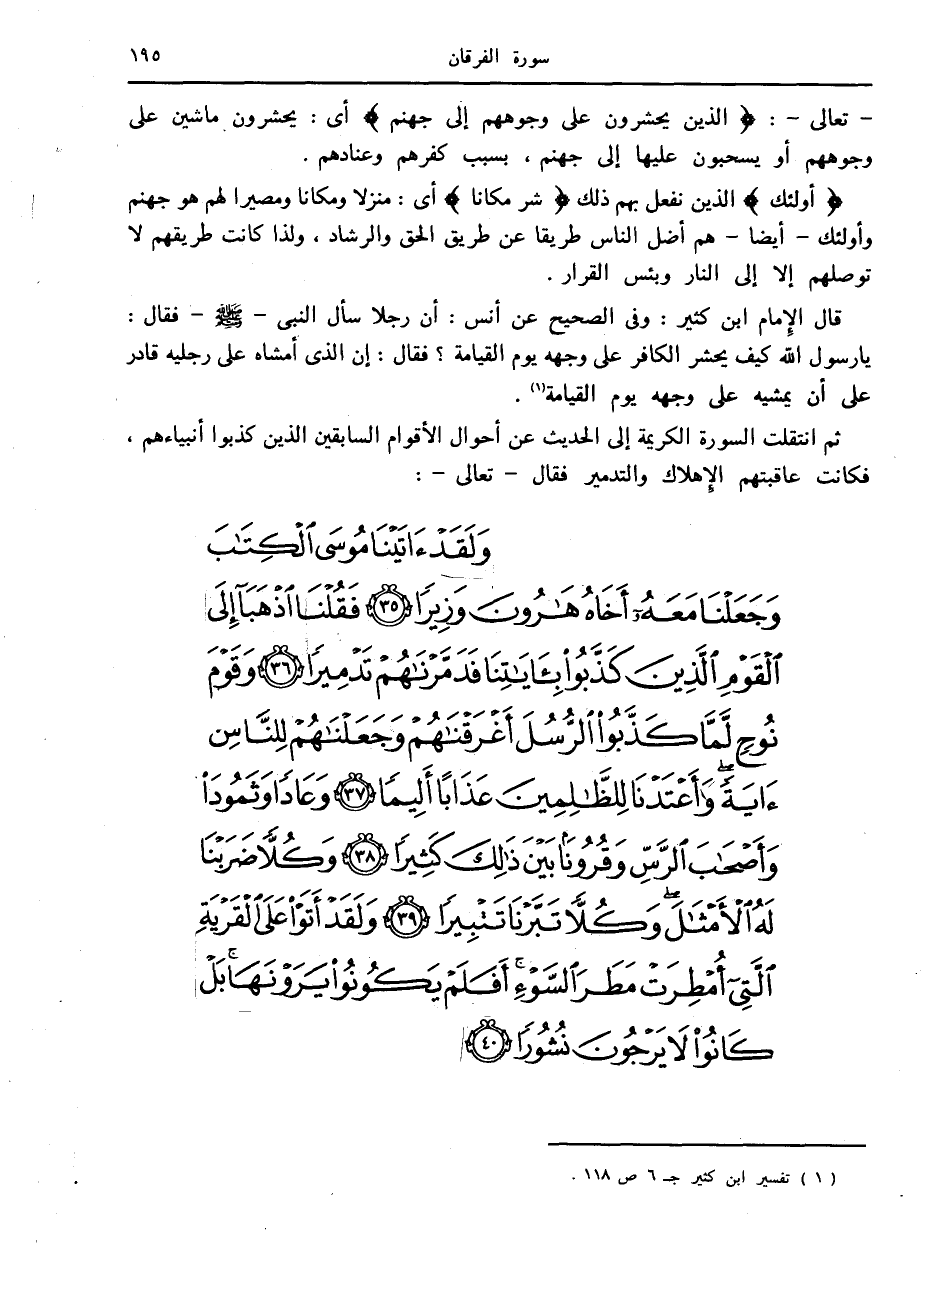 سورة الفرقان ١٩٥
- تعالى - : ﴿ الذين يحشرون على وجوههم إلى جهنم ﴾ أى : يحشرون ماشين على
وجوههم أو يسحبون عليها إلى جهنم ، بسبب كفرهم وعنادهم .
﴿ أولئك ﴾ الذين نفعل بهم ذلك ﴿ شر مكانا ﴾ أى : منزلا ومكانا ومصيرا لهم هو جهنم
وأولئك - أيضا - هم أضل الناس طريقا عن طريق الحق والرشاد ، ولذا كانت طريقهم لا
توصلهم إلا إلى النار وبئس القرار .
قال الإمام ابن كثير : وفى الصحيح عن أنس : أن رجلا سأل النبى - ﷺ - فقال :
يارسول الله كيف يحشر الكافر على وجهه يوم القيامة ؟ فقال : إن الذى أمشاه على رجليه قادر
على أن يمشيه على وجهه يوم القيامة(١) .
ثم انتقلت السورة الكريمة إلى الحديث عن أحوال الأقوام السابقين الذين كذبوا أنبياءهم ،
فكانت عاقبتهم الإهلاك والتدمير فقال - تعالى - :
وَلَقَدْ ءَاتَيْنَا مُوسَى ٱلْكِتَٰبَ
وَجَعَلْنَا مَعَهُۥٓ أَخَاهُ هَٰرُونَ وَزِيرًا ٣٥ فَقُلْنَا ٱذْهَبَآ إِلَى
ٱلْقَوْمِ ٱلَّذِينَ كَذَّبُوا۟ بِـَٔايَٰتِنَا فَدَمَّرْنَٰهُمْ تَدْمِيرًا ٣٦ وَقَوْمَ
نُوحٍ لَّمَّا كَذَّبُوا۟ ٱلرُّسُلَ أَغْرَقْنَٰهُمْ وَجَعَلْنَٰهُمْ لِلنَّاسِ
ءَايَةً ۖ وَأَعْتَدْنَا لِلظَّٰلِمِينَ عَذَابًا أَلِيمًا ٣٧ وَعَادًا وَثَمُودَا۟
وَأَصْحَٰبَ ٱلرَّسِّ وَقُرُونًۢا بَيْنَ ذَٰلِكَ كَثِيرًا ٣٨ وَكُلًّا ضَرَبْنَا
لَهُ ٱلْأَمْثَٰلَ ۖ وَكُلًّا تَبَّرْنَا تَتْبِيرًا ٣٩ وَلَقَدْ أَتَوْا۟ عَلَى ٱلْقَرْيَةِ
ٱلَّتِىٓ أُمْطِرَتْ مَطَرَ ٱلسَّوْءِ ۚ أَفَلَمْ يَكُونُوا۟ يَرَوْنَهَا ۚ بَلْ
كَانُوا۟ لَا يَرْجُونَ نُشُورًا ٤٠
( ١ ) تفسير ابن كثير جـ ٦ ص ١١٨ .